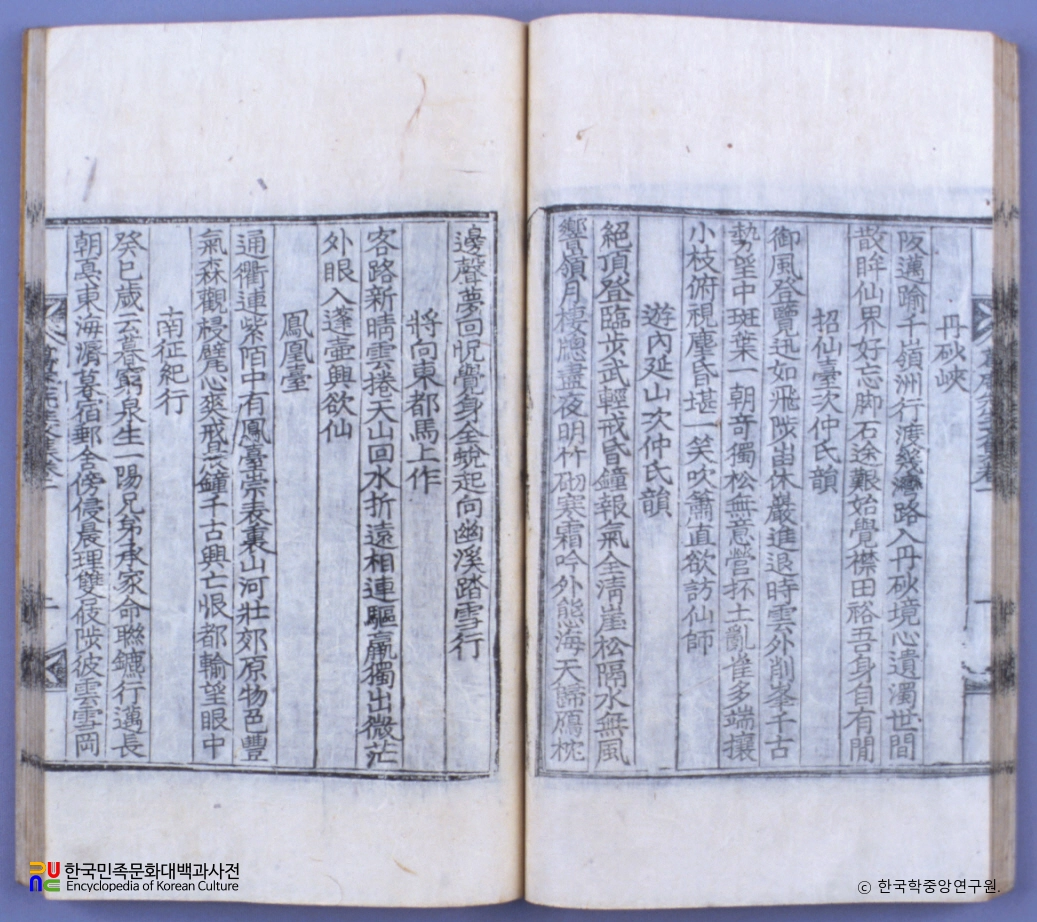 丹砂峽
阪邁踰千嶺洲行渡幾灣路入丹砂境心遺濁世間
散眸仙界好忘脚石途艱始覺襟田裕吾身自有閒
招仙臺次仲氏韻
御風登覽迅如飛陟出休巖進退時雲外削峯千古
勢望中斑葉一朝奇獨松無意營抔土亂雀多端攘
小枝俯視塵昏堪一笑吹簫直欲訪仙師
遊內延山次仲氏韻
絕頂登臨步武輕戒昏鐘報氣全淸崖松隔水無風
響嶺月樓牕盡夜明竹砌寒霜吟外態海天歸鴈枕
邊聲夢回怳覺身全蛻起向幽溪踏雪行
將向東都馬上作
客路新晴雲捲天山回水折遠相連驅羸獨出微茫
外眼入蓬壺興欲仙
鳳凰臺
通衢連紫陌中有鳳臺崇表裏山河壯郊原物色豐
氣森觀祲甓心爽戒昏鐘千古興亡恨都輸望眼中
南征紀行
癸巳歲云暮窮泉生一陽兄弟承家命聯鑣行邁長
朝憙東海濱暮宿郵舍傍侵晨理雙屐陟彼雲雲岡
한국민족문화대백과사전
Encyclopedia of Korean Culture
© 한국학중앙연구원.